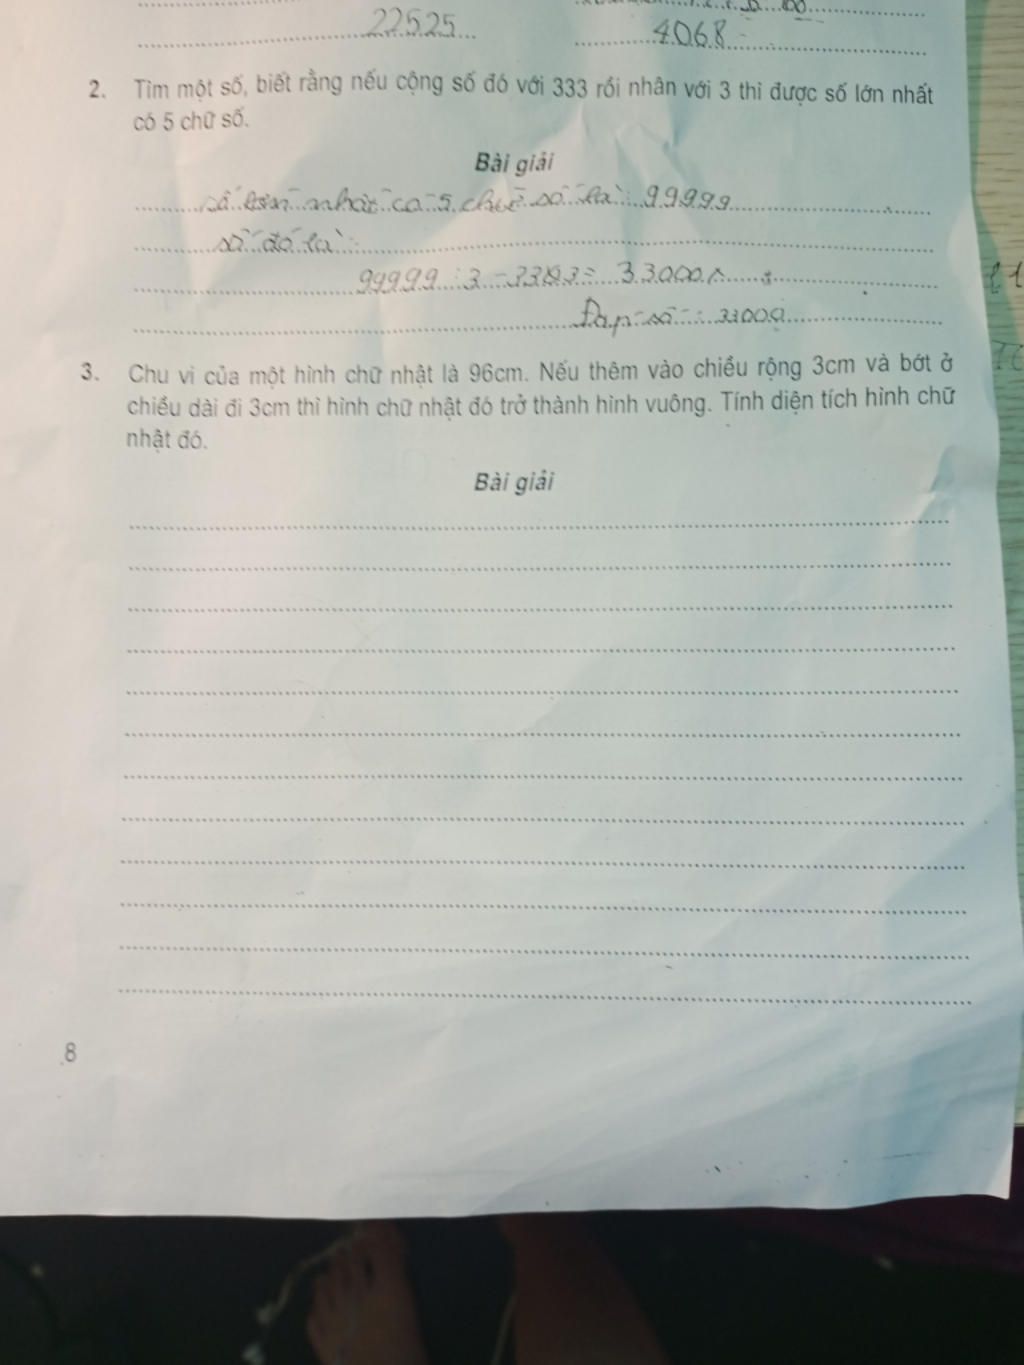 22525
4068
2. Tìm một số, biết rằng nếu cộng số đó với 333 rồi nhân với 3 thì được số lớn nhất
có 5 chữ số.
Bài giải
Số lớn nhất có 5 chữ số là: 99999
số đó là:
99999 : 3 - 333 = 33000
Đáp số: 33000
3. Chu vi của một hình chữ nhật là 96cm. Nếu thêm vào chiều rộng 3cm và bớt ở
chiều dài đi 3cm thì hình chữ nhật đó trở thành hình vuông. Tính diện tích hình chữ
nhật đó.
Bài giải
8